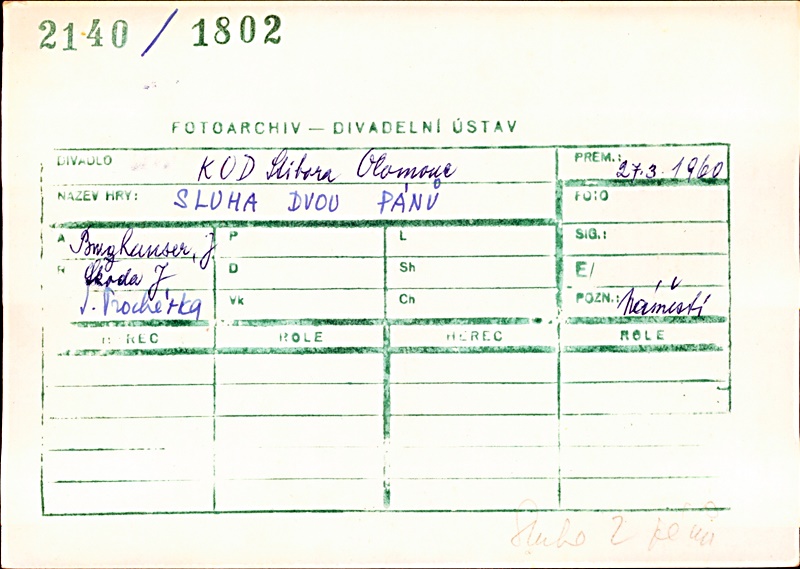 2140 / 1802
FOTOARCHIV — DIVADELNÍ ÚSTAV
DIVADLO KOD Stibora Olomouc
PREM.: 27.3.1960
NÁZEV HRY: SLUHA DVOU PÁNŮ
FOTO
A Burghauser, J
P
L
SIG.:
R Škoda J
D
Sh
E/
J. Procházka
Vk
Ch
POZN.: náměstí
HEREC ROLE HEREC ROLE
Sluha 2 pánů